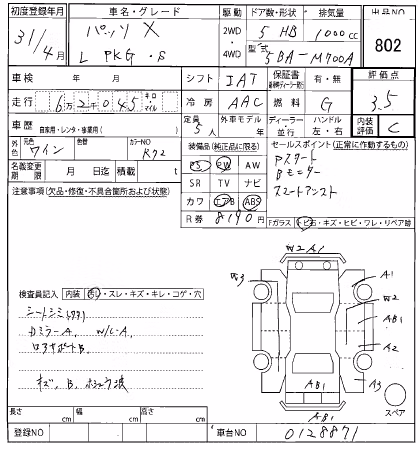 初度登録年月
車名・グレード
駆動
ドア数・形状
排気量
出品NO
31/4月
パッソ X
L PKG・S
2WD・4WD
5 HB
1000 CC
型式
5BA-M700A
802
車検 年 月
シフト IAT
保証書 有・無
評価点
3.5
走行 6万2千045 キロ・マイル
冷房 AAC
燃料 G
車歴 自家用・レンタ・修復用( )
定員 5人
外車モデル 年
ディーラー・並行
ハンドル 左・右
内装評価 C
外色 元色 ワイン
色替
カラーNO R72
装備品(純正品に限る)
PS PW AW
SR TV ナビ
カワ エアB ABS
R券 8190円
セールスポイント(正常に作動するもの)
Pスタート
Bモニター
スマートアシスト
名義変更期限 月 日 積載 t
注意事項(欠品・修復・不具合箇所および状態)
Fガラス トビ石・キズ・ヒビ・ワレ・リペア跡
W2 A1
W3
A1
W2
A2
AB1
A3
AB1
スペア
検査員記入 内装 汚レ・スレ・キズ・キレ・コゲ・穴
シートシミ
カミラーA W/L A
ロアサポートB
キズ、B、ホシュウ波
長さ cm 幅 cm 高さ cm
登録NO
車台NO 0128871